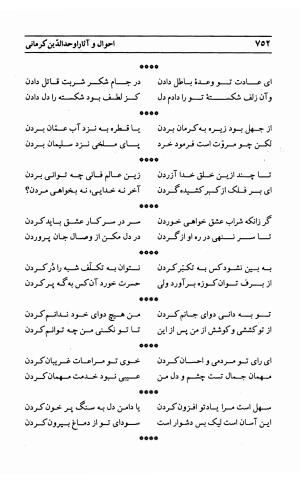 ۷۵۲ احوال و آثار اوحدالدّین کرمانی
****
ای عادت تو وعدهٔ باطل دادن در جام شکر شربت قاتل دادن
وآن زلف شکستهٔ تو را دادم دل کز لطف بود شکسته را دل دادن
****
از جهل بود زیره به کرمان بردن یا قطره به نزد آب عمّان بردن
لکن چو مروّت است فرمود خرد پای ملخی نزد سلیمان بردن
****
تا چند ازین خلق خدا آزردن زین عالم فانی چه توانی بردن
ای بر فلک از کبر کشیده گردن آخر نه خدایی، نه بخواهی مردن؟
****
گر زانکه شراب عشق خواهی خوردن سر در سر کار عشق باید کردن
تا سر ننهی در ره او از گردن در دل مکن از وصال جان پروردن
****
به بین نشود کس به تکبّر کردن نتوان به تکلّف شبه را دُر کردن
از برف توان کوزه برآورد ولی حسرت خورد آن کس به گه پر کردن
****
تو به دانی دوای جانم کردن من هیچ دوای خود ندانم کردن
از تو کشش و کوشش از من پس از این تا تو نکنی من چه توانم کردن
****
ای رای تو مردمی و احسان کردن خوی تو مراعات غریبان کردن
مهمان جمال تست چشم و دل من عیبی نبود خدمت مهمان کردن
****
سهل است مرا یاد تو افزون کردن یا دامن دل به سنگ پر خون کردن
این آسان است لیک بس دشوار است سودای تو از دماغ بیرون کردن
****